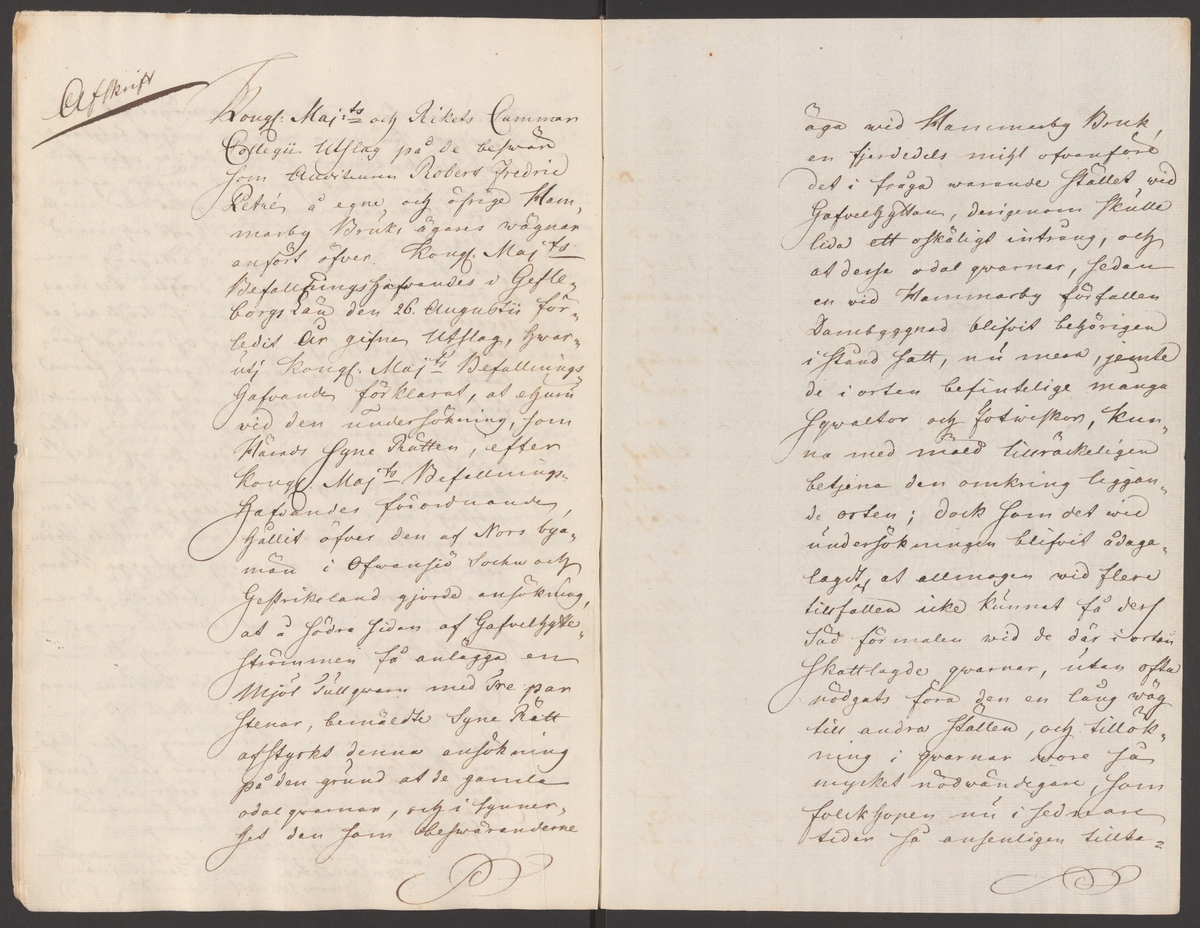 Afskrift
Kongl. Maj:ts och Rikets Cammar
Collegii Utslag på de beswär
som Auditeuren Robert Fredric
Petré å egne och öfrige Ham,,
marby Bruks ägares wägnar
anfört öfver Kongl. Maj:ts
Befallningshafvandes i Gefle,,
borgs Län den 26. Augustii för,,
ledit År gifne Utslag, hwar,,
utj Kongl. Maj:ts Befallnings,,
hafvande förklarat, at ehuru
vid den undersökning, som
Härads Syne Rätten, efter
Kongl. Maj:ts Befallnings,,
hafvandes förordnande,
hållit öfver den af Nors bya,,
män i Ofwansjö Sochn och
Gestrikeland gjorde ansökning,
at å södra sidan af Gafvelhytte,,
strömmen få anlägga en
Mjöl Tullqwarn med Tre par
stenar, bemäldte Syne Rätt
afstyrkt denna ansökning
på den grund at de gamla
odal qwarnar, och i synner,,
het den som beswäranderne
äga wid Hammarby Bruk,
en fjerdedels mihl ofvanföre
det i fråga warande stället wid
Gafvelhyttan, derigenom skulle
lida ett oskäligt intrång, och
at desse odal qwarnar, sedan
en vid Hammarby förfallen
Dambyggnad blifvit behörigen
i stånd satt, nu mera, jemte
de i orten befintelige många
sqwaltor och fotwiskor, kun,,
na med mäld tillräckeligen
betjena den omkring liggan,,
de orten; dock som det wid
undersökningen blifvit ådaga,,
lagdt, at allmogen wid flere
tillfällen icke kunnat få dess
Säd förmalen wid de där i orten
skattlagde qwarnar, utan ofta
nödgats föra den en lång wäg
till andra ställen, och tillök,,
ning i qwarnar wore så
mycket nödvändigare, som
folckhopen nu i sednare
tider så ansenligen tillta=